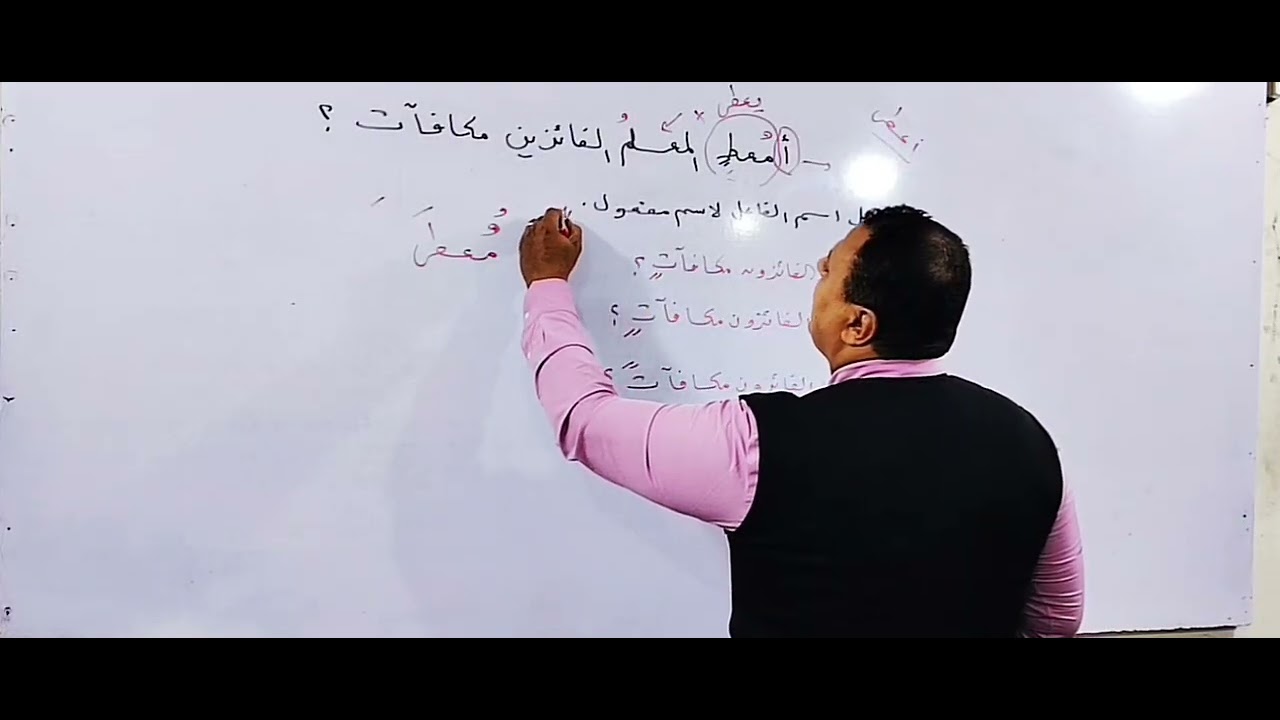 يعطى
أعطى
أمُعطٍ المعلمُ الفائزين مكافآت ؟
اسم الفاعل لاسم مفعول .
مُعطَى
الفائزون مكافآتٍ ؟
الفائزون مكافآتٍ ؟
الفائزون مكافآتً ؟